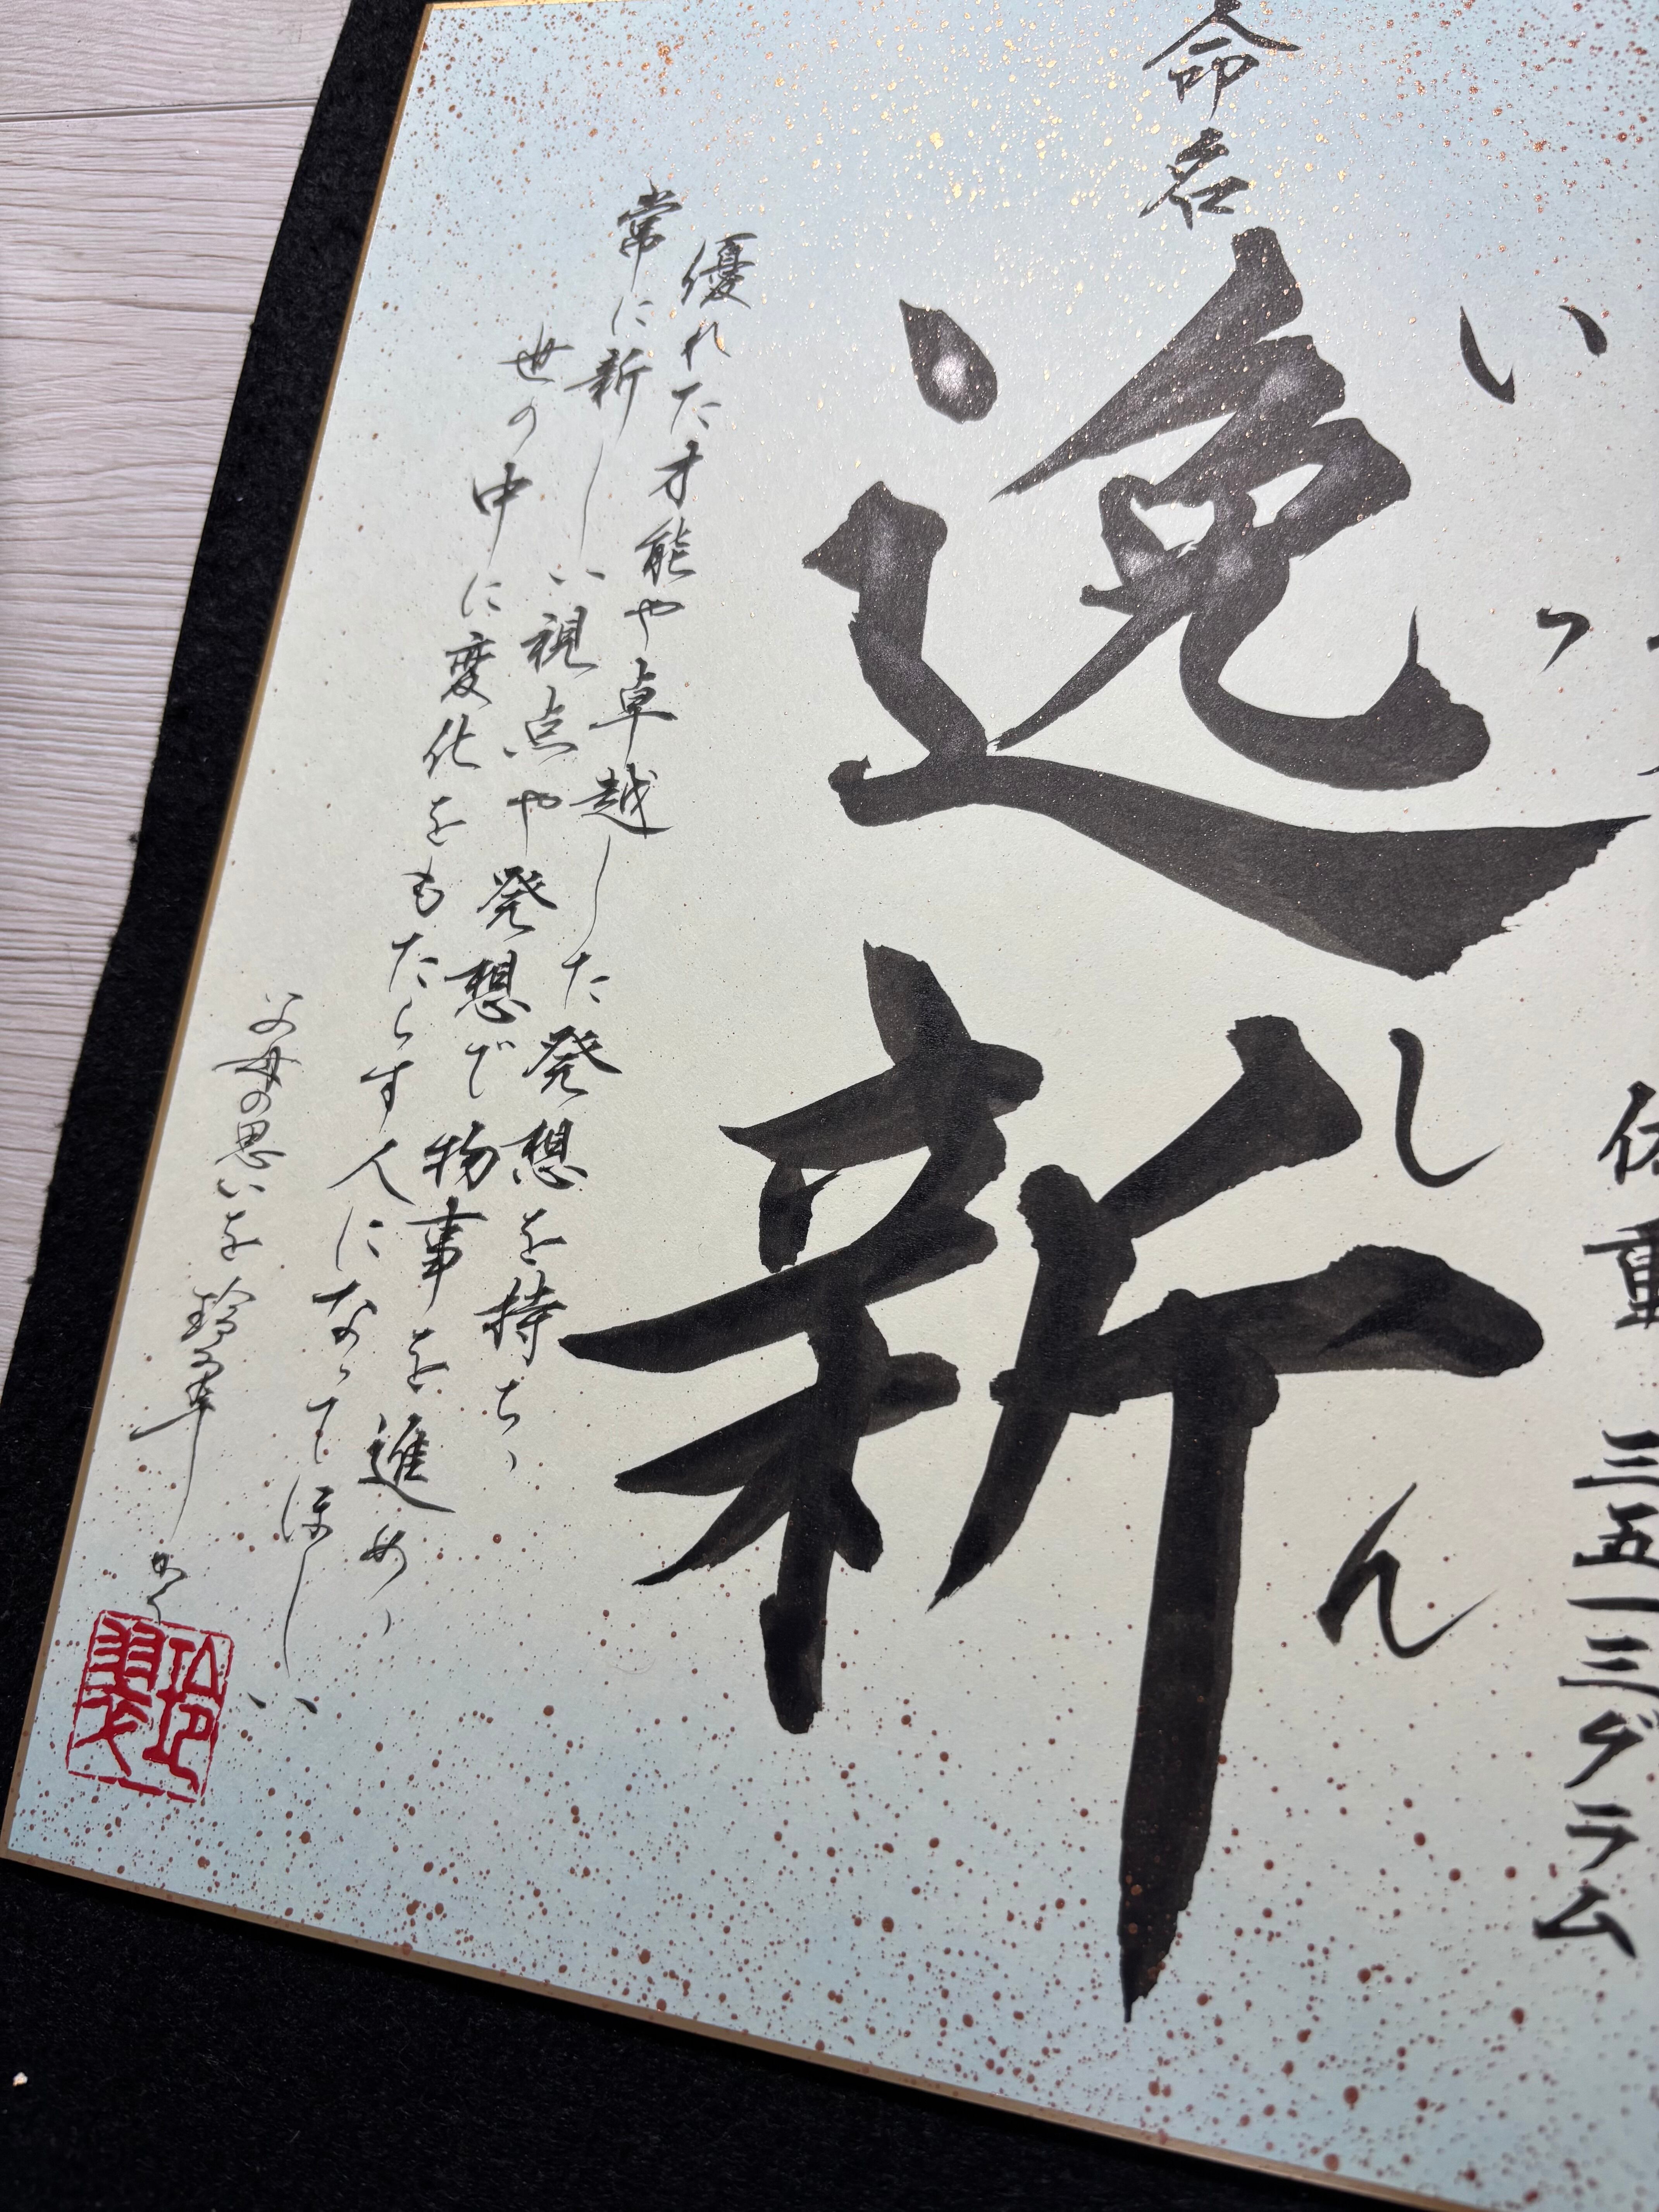 体重 三五一三グラム
いっしん
命名
逸新
優れた才能や卓越した発想を持ち、
常に新しい視点や発想で物事を進め、
世の中に変化をもたらす人になってほしい
父母の思いを